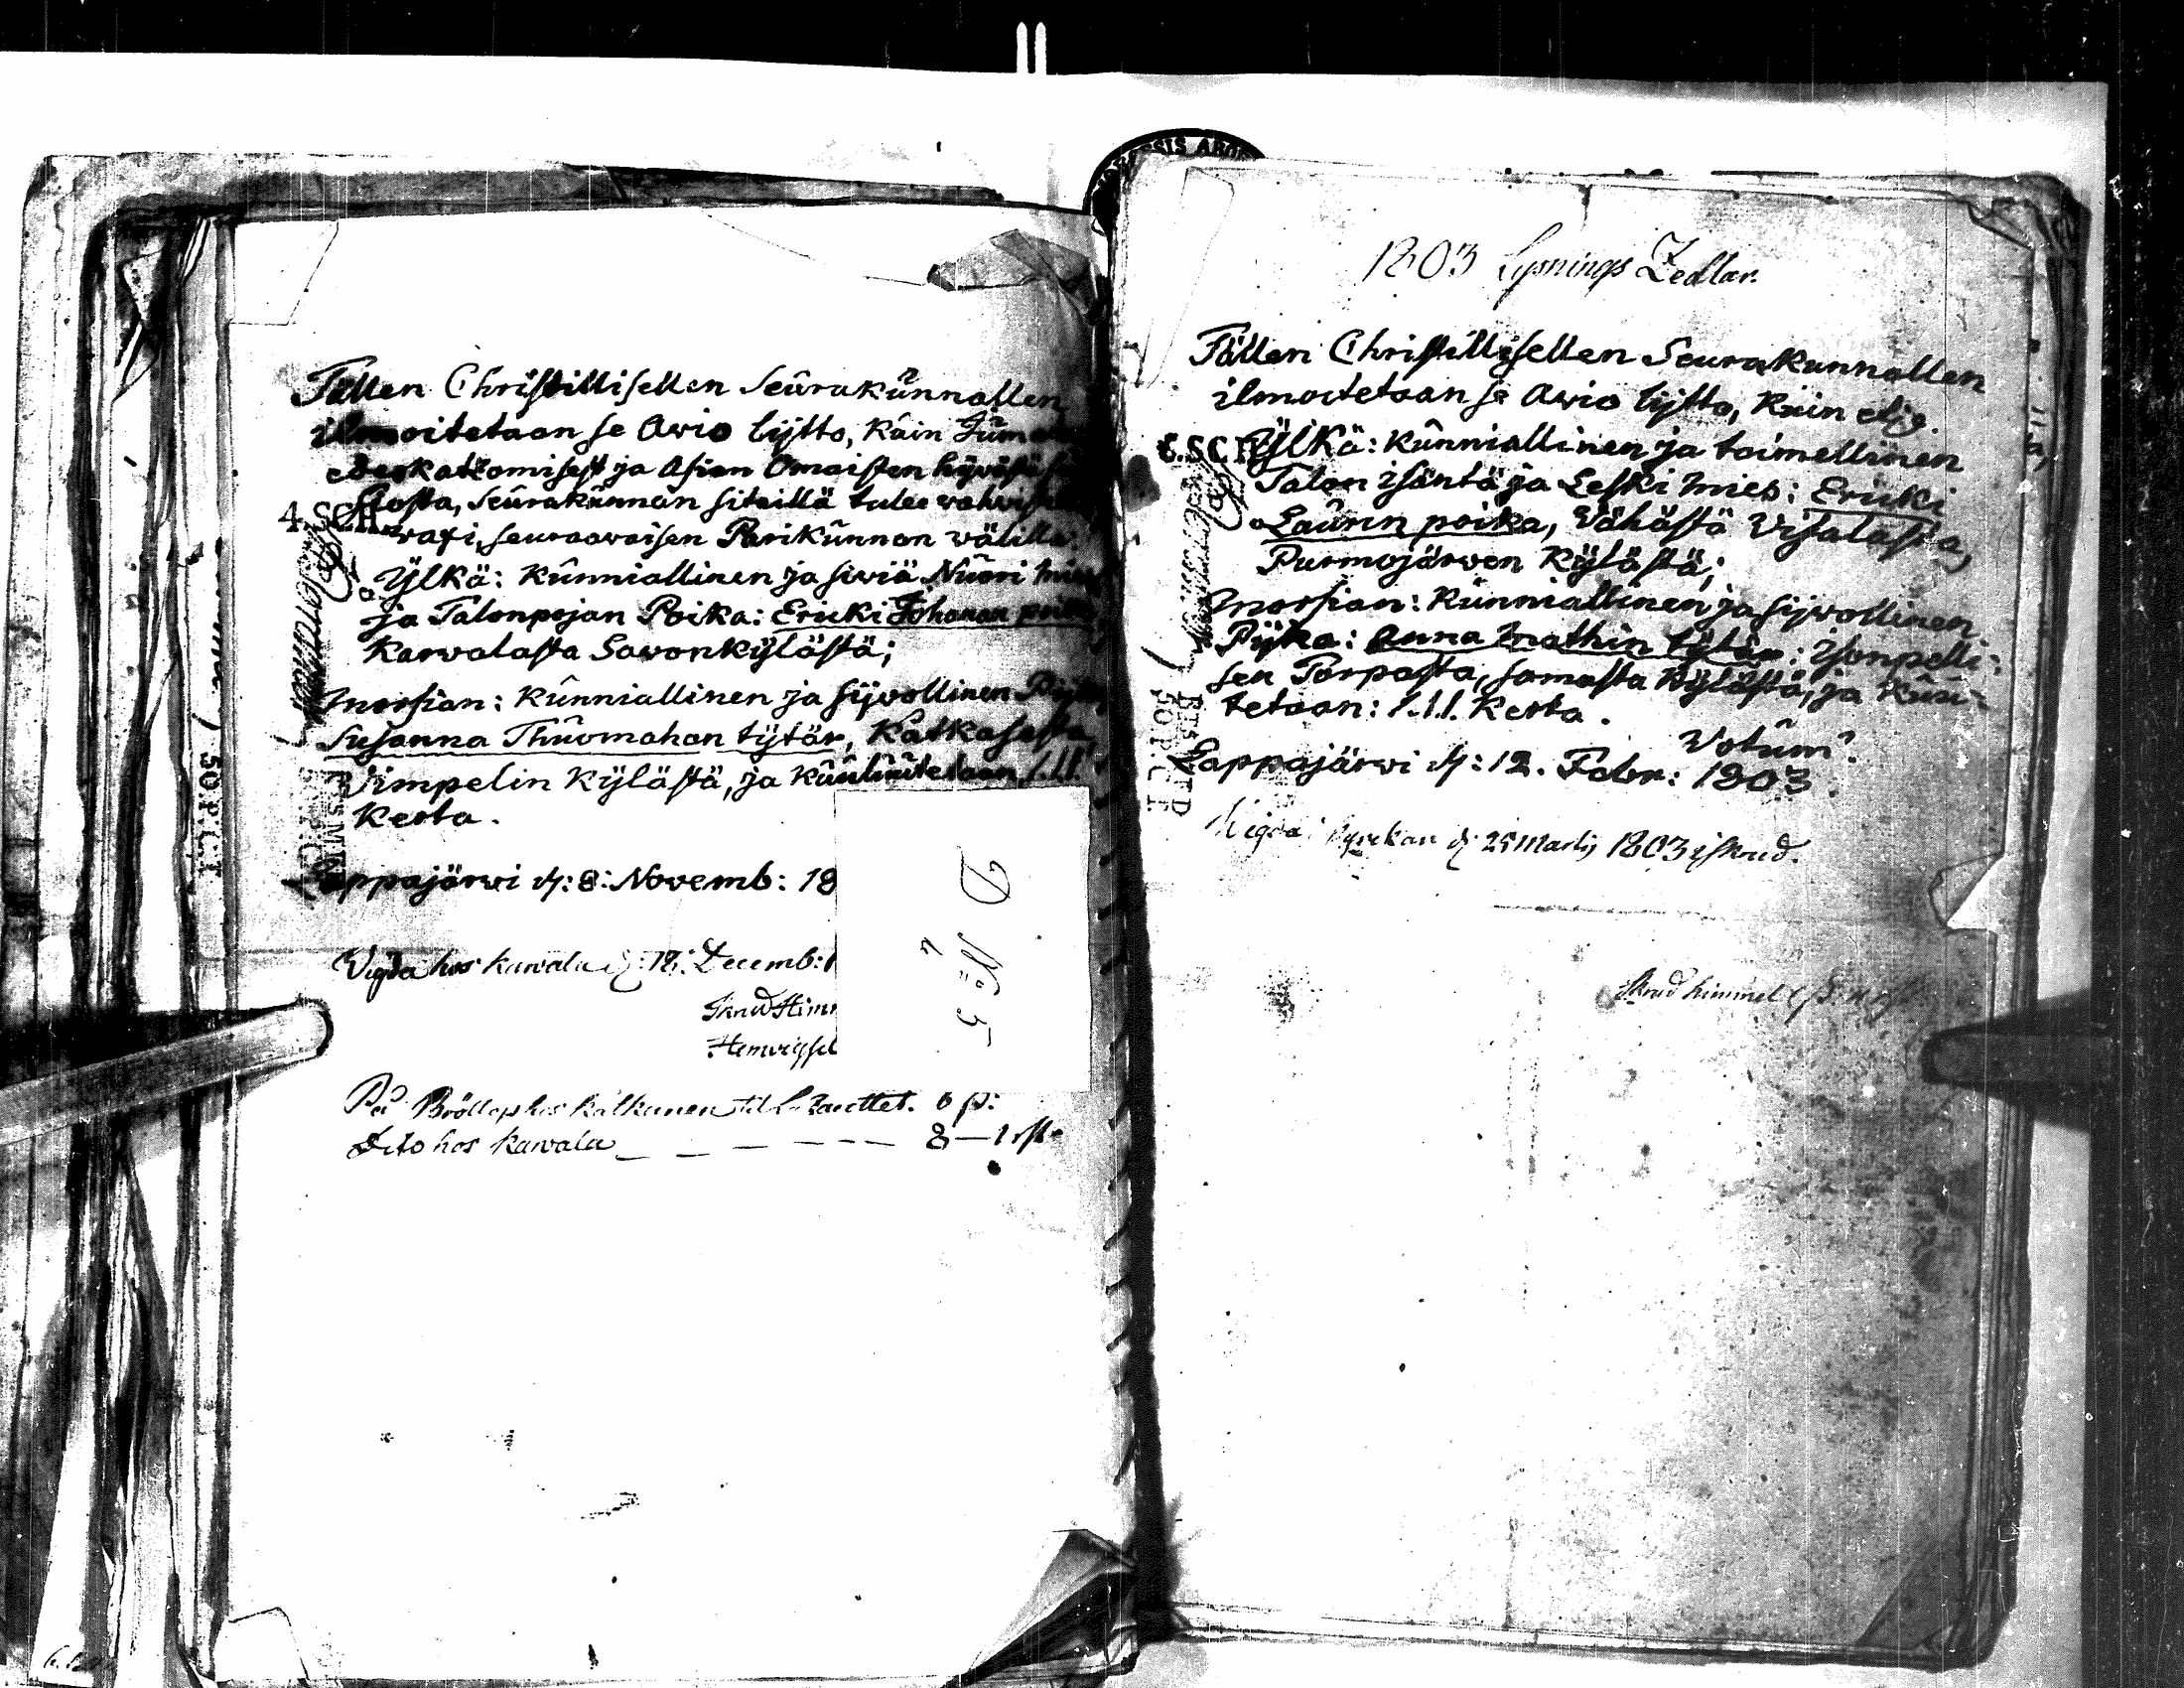 Tällen Christillisellen Seurakunnallen
ilmoitetaan se Avio lijtto, kuin Jum
edeskatzomisest ja Asian Omaisten hyväsu
stosta, Seurakunnan siteillä tulee vahvis
vaxi, seuraavaisen Parikunnan välillä.
4.SCH
Ylkä: kunniallinen ja siviä Nuori mies
ja Talonpojan Poika: Ericki Johanan poika
Karvalasta Savonkylästä;
Morsian: kunniallinen ja sijvollinen Pijka
Susanna Thuomahan tytär, Katkasesta,
Vimpelin kylästä, ja kuulutetaan 1.1.1.
kerta.
Lappajärvi d: 8: Novemb: 18
Vigda hos Karvala d: 18: Decemb: 1
Skrud Him
Hemvigsel
På Bröllop hos Katkanen til Lazarettet. 6 p:
Dito hos Karvala — — — — — 8 — 1 rst
D
No 5
50.P.CT
1803 Lysnings Zedlar.
Tällen Christillisellen Seurakunnallen
ilmoitetaan se Avio lijtto, kuin etc.
6.SCH
Ylkä: kunniallinen ja toimellinen
Talon isäntä ja Leski mies: Ericki
Laurin poika, Vähästä Visalasta,
Purmojärven kylästä;
Morsian: kunniallinen ja sijvollinen
Pijka: Anna Mathin tytär: Isonpelli-
sen Torpasta, samasta kylästä, ja kuu-
tetaan: 1.1.1. kerta.
Votum?
Lappajärvi d: 12. Febr: 1803.
Vigda i kyrckan d: 25 Martij 1803 i skrud.
Skrud himmel